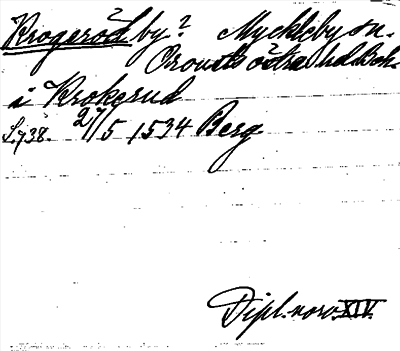 Krogeröd by? Myckleby sn.
Orousts östra hd. Boh.
i Krokerud
S. 738. 27/5 1534 Berg
Dipl. norv. XIV.